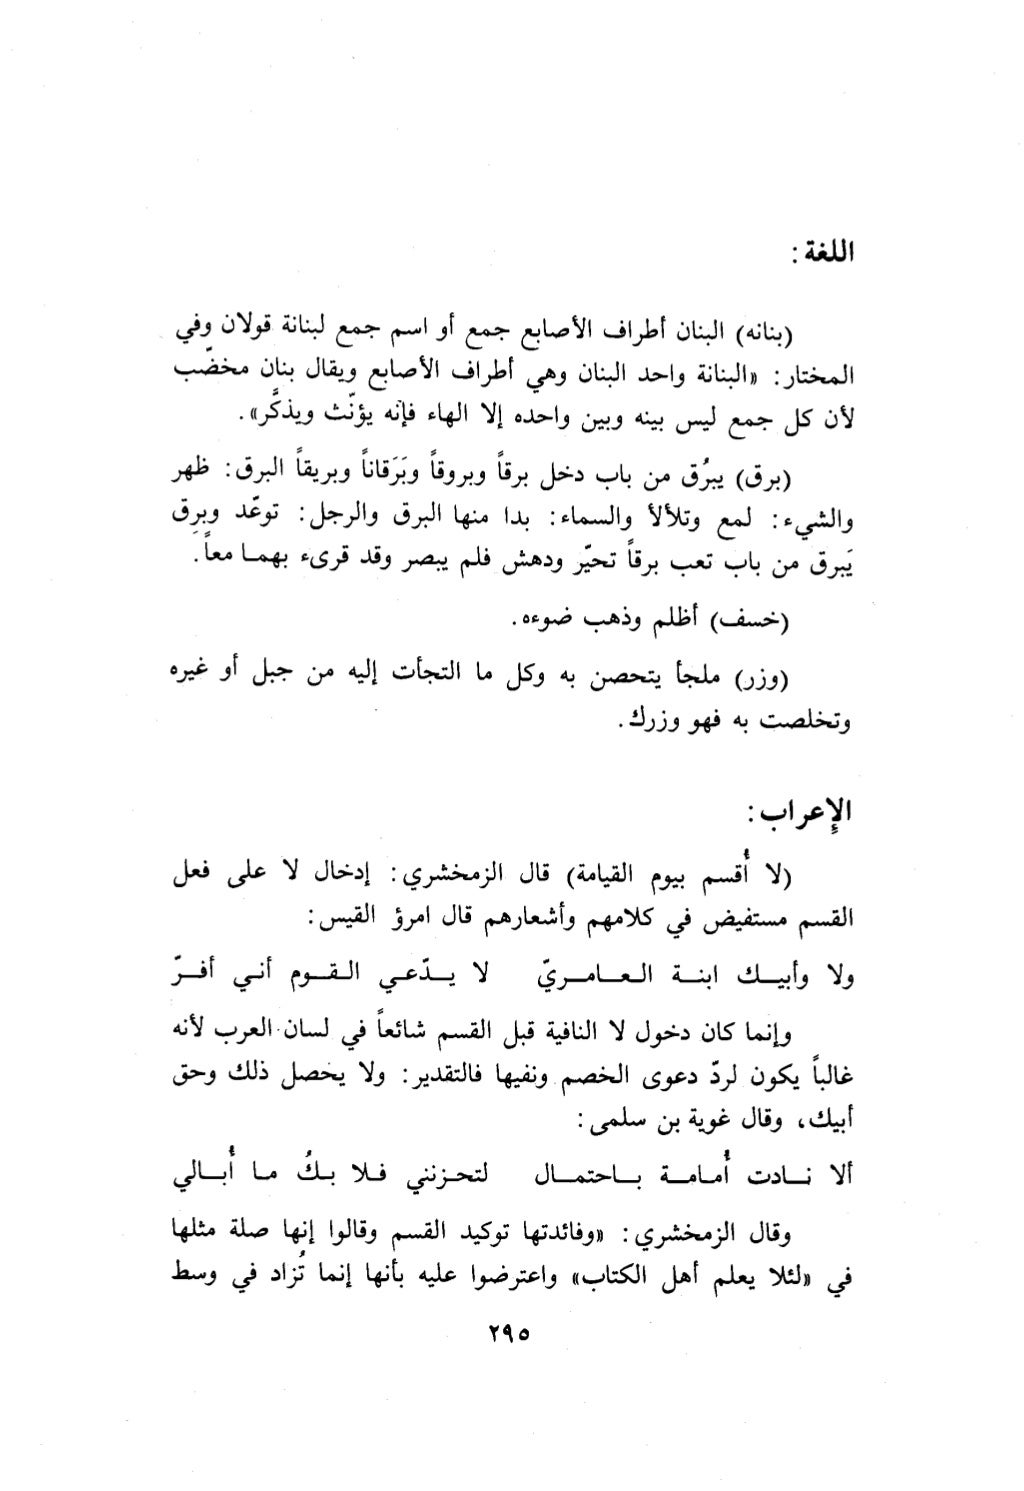 اللغة :
(بنانه) البنان أطراف الأصابع جمع أو اسم جمع لبنانة قولان وفي
المختار: «البنانة واحد البنان وهي أطراف الأصابع ويقال بنان مخضّب
لأن كل جمع ليس بينه وبين واحده إلا الهاء فإنه يؤنّث ويذكَّر».
(برق) يبرُق من باب دخل برقاً وبروقاً وبَرَقاناً وبريقاً البرق: ظهر
والشيء: لمع وتلألأ والسماء: بدا منها البرق والرجل: توعّد وبرِق
يَبرق من باب تعب برقاً تحيّر ودهش فلم يبصر وقد قرىء بهما معاً.
(خسف) أظلم وذهب ضوءه.
(وزر) ملجأ يتحصن به وكل ما التجأت إليه من جبل أو غيره
وتخلصت به فهو وزرك.
الإعراب :
(لا أُقسم بيوم القيامة) قال الزمخشري: إدخال لا على فعل
القسم مستفيض في كلامهم وأشعارهم قال امرؤ القيس:
ولا وأبيـك ابنـة الـعـامـريّ لا يـدّعـي القـوم أنـي أفـرّ
وإنما كان دخول لا النافية قبل القسم شائعاً في لسان العرب لأنه
غالباً يكون لردّ دعوى الخصم ونفيها فالتقدير: ولا يحصل ذلك وحق
أبيك، وقال غوية بن سلمى:
ألا نـادت أُمامـة بـاحتمـال لتحـزنني فـلا بـكُ مـا أُبـالي
وقال الزمخشري: «وفائدتها توكيد القسم وقالوا إنها صلة مثلها
في «لئلا يعلم أهل الكتاب» واعترضوا عليه بأنها إنما تُزاد في وسط
٢٩٥